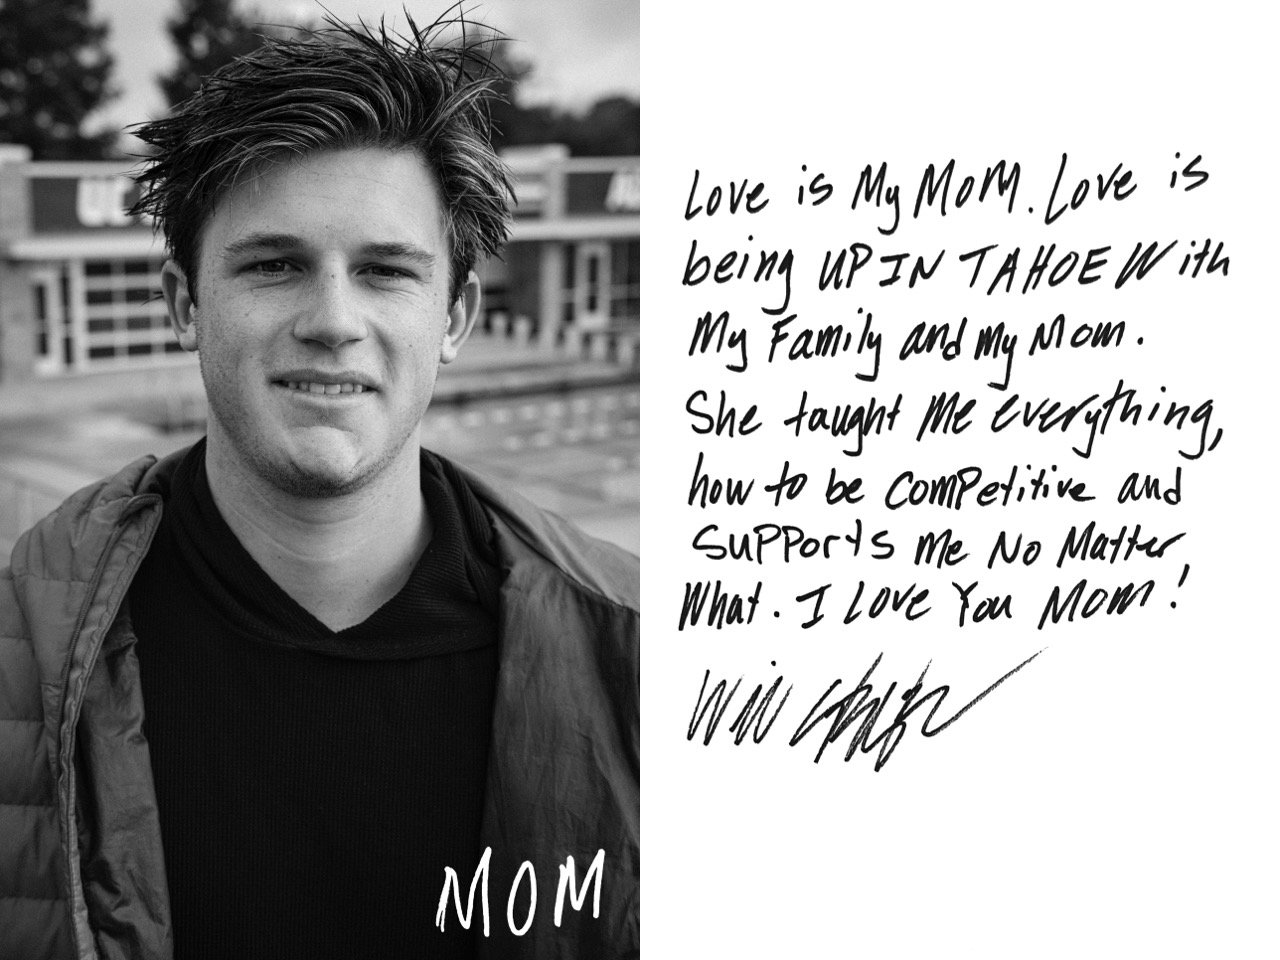 MOM
Love is My MOM. Love is
being UP IN TAHOE With
My Family and my Mom.
She taught Me everything,
how to be competitive and
supports me No Matter
What. I Love You Mom!